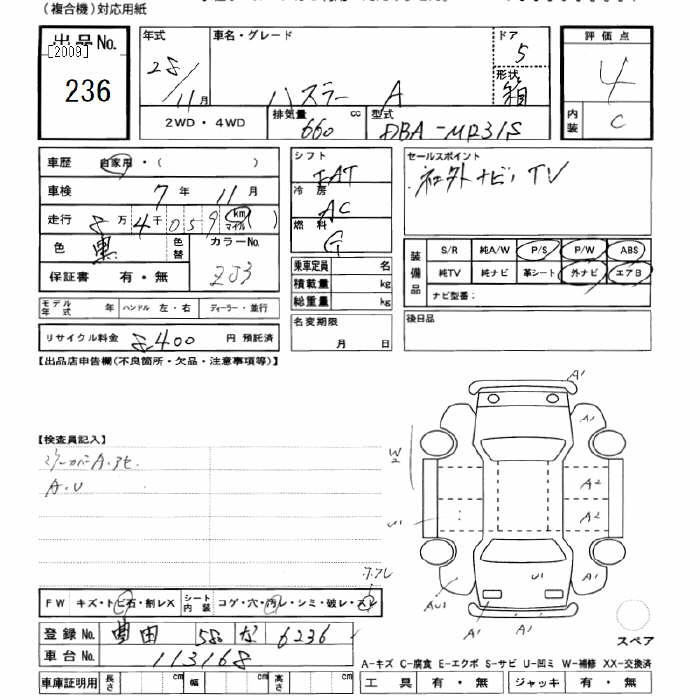 (複合機)対応用紙
出品No.
[2009]
236
年式
28/11月
車名・グレード
ハスラー A
ドア
5
形状
箱
評価点
4
内装
C
2WD・4WD
排気量
660 cc
型式
DBA-MR31S
車歴 自家用・( )
車検 7年 11月
走行 8万4千059 km マイル
色 黒 色替 カラーNo. ZJ3
保証書 有・無
シフト
冷房
AC
燃料
G
乗車定員 名
積載量 kg
総重量 kg
名変期限
月 日
セールスポイント
社外ナビ、TV
装備品
S/R 純A/W P/S P/W ABS
純TV 純ナビ 革シート 外ナビ エアB
ナビ型番:
後日品
モデル年式 年 ハンドル 左・右 ディーラー・並行
リサイクル料金 8400 円 預託済
【出品店申告欄(不良箇所・欠品・注意事項等)】
【検査員記入】
A.U
W2
U1
A1
A1
A2
A2
U1
AU1
A1
A1
FW キズ・トビ石・割レX シート内装 コゲ・穴・汚レ・シミ・破レ・スレ
登録No. 豊田 58 な 6236
車台No. 113168
車庫証明用 長さ cm 幅 cm 高さ cm
スペア
A-キズ C-腐食 E-エクボ S-サビ U-凹ミ W-補修 XX-交換済
工具 有・無 ジャッキ 有・無